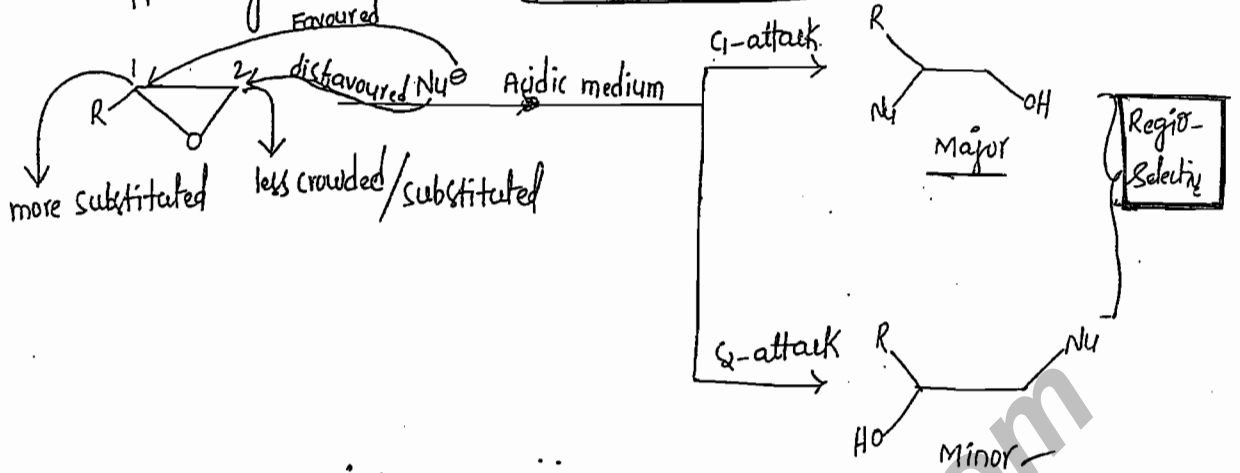 Favoured
1 2 disfavoured Nu⊖ Acidic medium
R
O
more substituted less crowded/substituted
C1-attack
R
Nu OH
Major
Regio-
Selectiv
C2-attack R Nu
HO
Minor